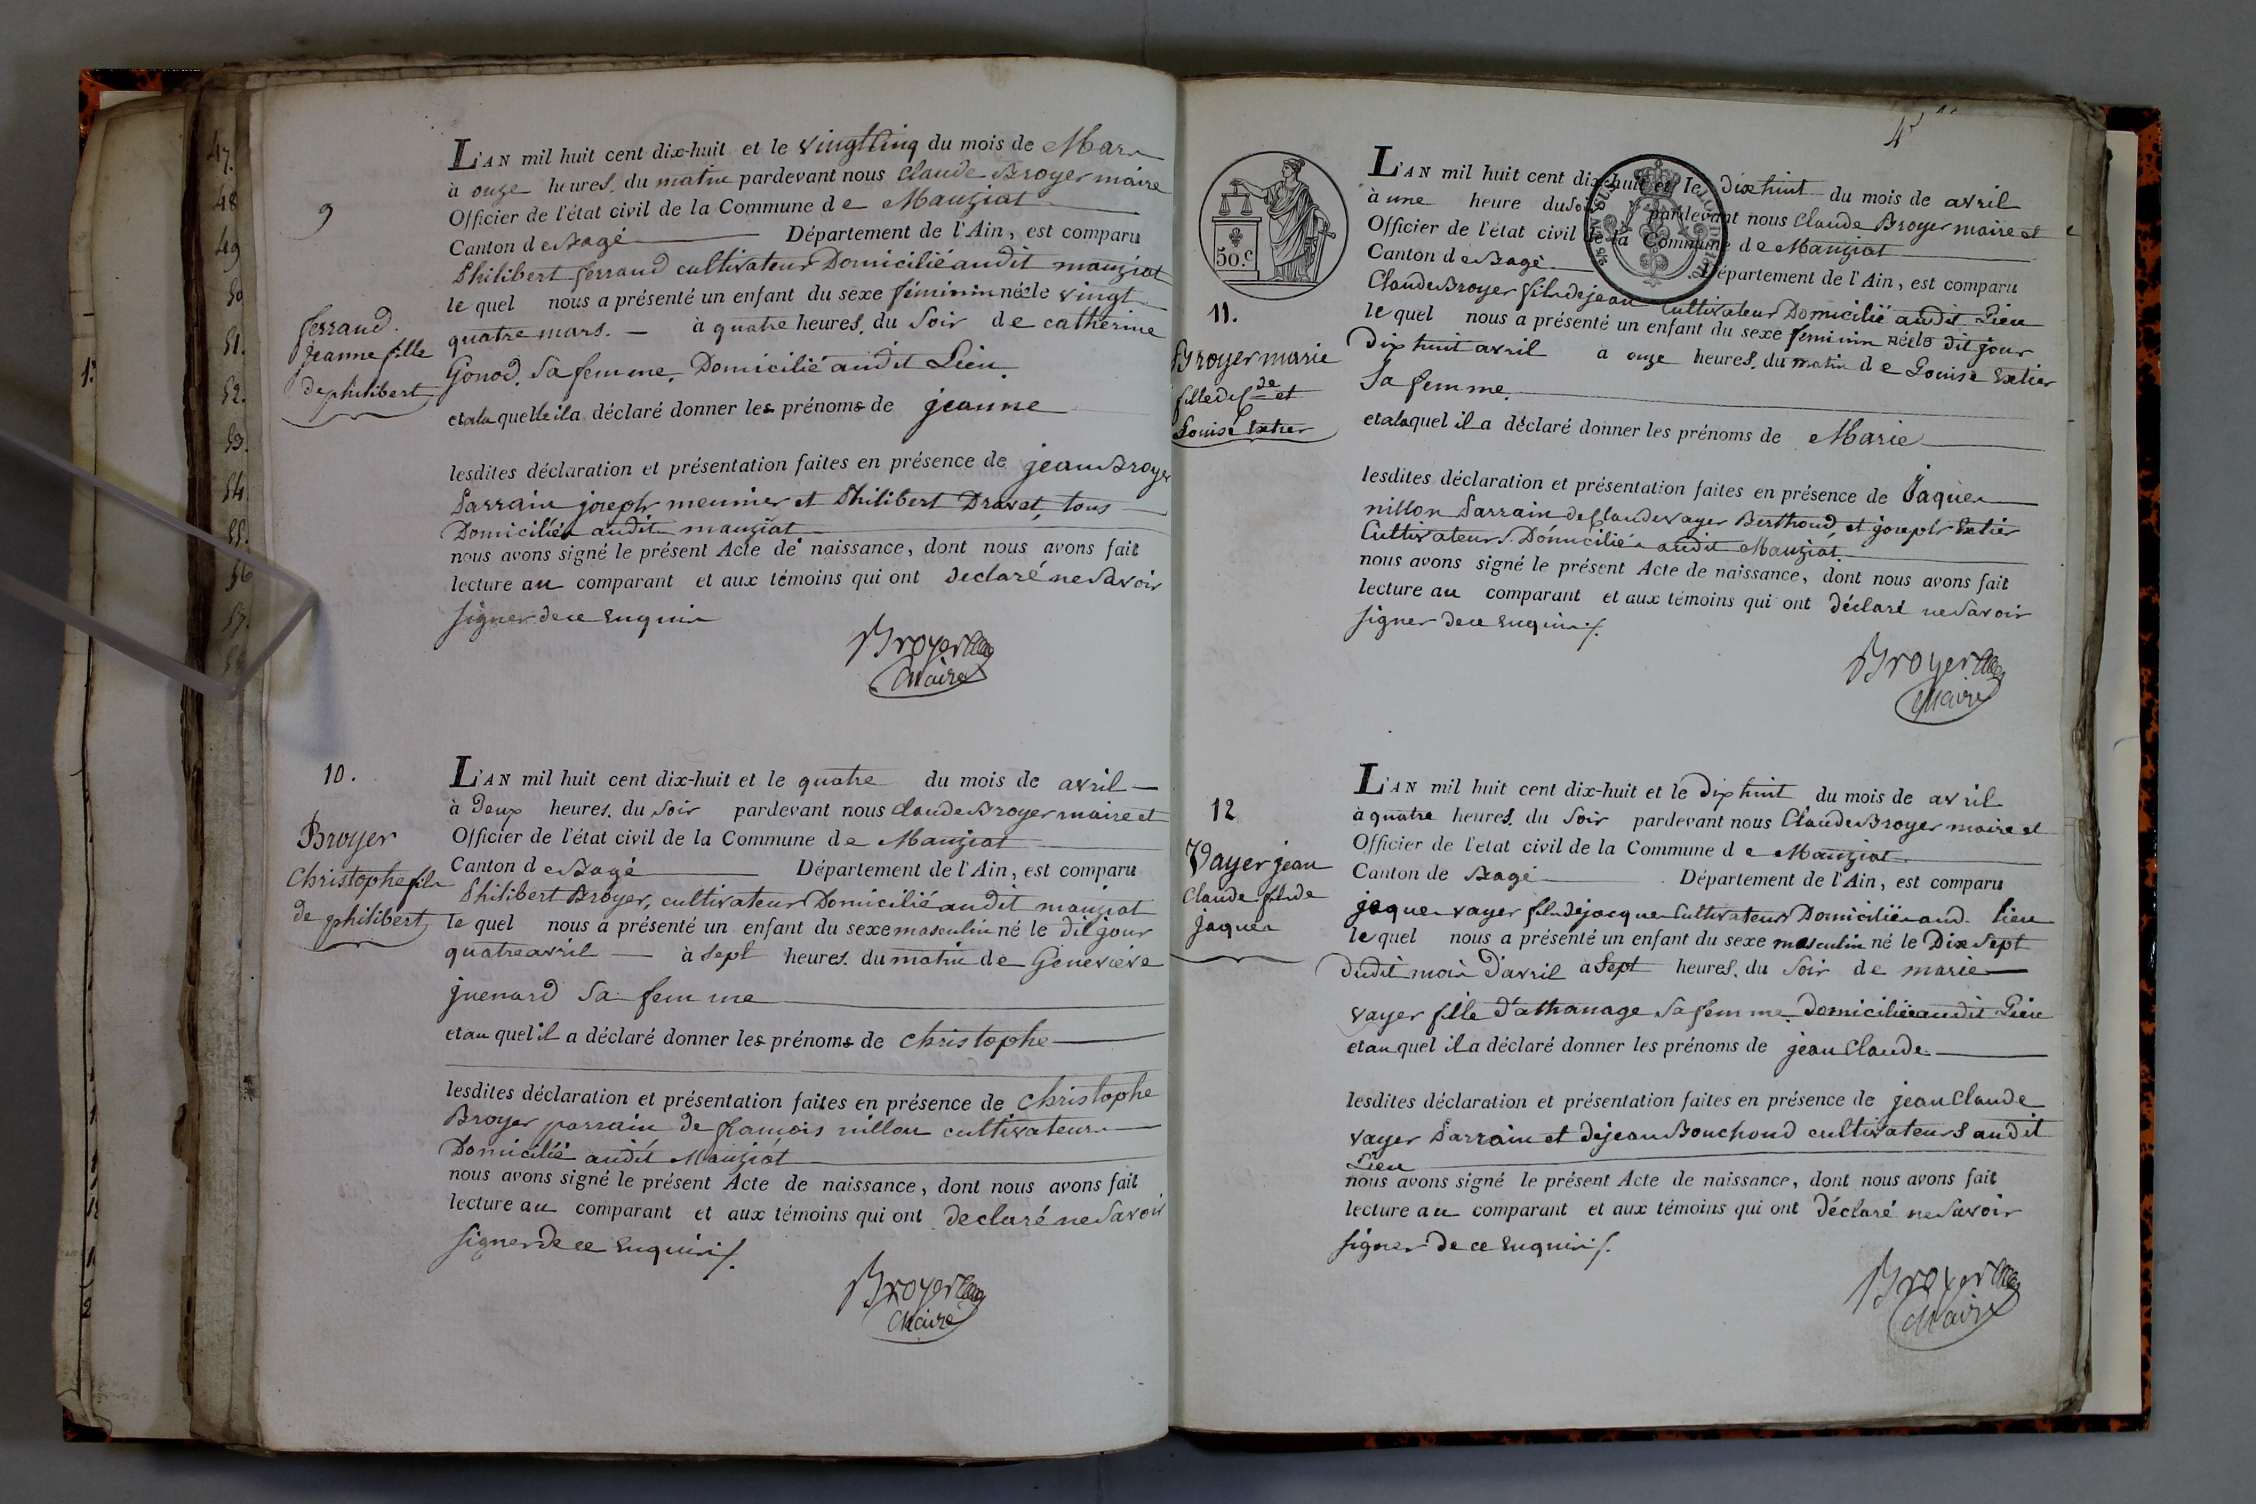 47.
48
49
50
51.
52.
53.
54.
55.
56
57.
9
ferraud.
jeanne fille
de philibert
L'AN mil huit cent dix-huit et le vingtcinq du mois de Mars
à onze heures du matin pardevant nous Claude Broyer maire
Officier de l'état civil de la Commune de Manziat
Canton de Bagé Département de l'Ain, est comparu
Philibert ferraud cultivateur Domicilié audit manziat
le quel nous a présenté un enfant du sexe féminin née le vingt
quatre mars. à quatre heures du Soir de catherine
Gonod. Sa femme. Domicilié audit Lieu.
et a la quelle il a déclaré donner les prénoms de jeanne
lesdites déclaration et présentation faites en présence de jean Broyer
Parrain joseph meunier et Philibert Dravet, tous
Domiciliés audit manziat
nous avons signé le présent Acte de naissance, dont nous avons fait
lecture au comparant et aux témoins qui ont declaré ne Savoir
signer de ce Enquis
Broyer
Maire
10.
Broyer
Christophe fils
de philibert
L'AN mil huit cent dix-huit et le quatre du mois de avril
à Deux heures du Soir pardevant nous Claude Broyer maire et
Officier de l'état civil de la Commune de Manziat
Canton de Bagé Département de l'Ain, est comparu
Philibert Broyer, cultivateur Domicilié audit manziat
le quel nous a présenté un enfant du sexe masculin né le dit jour
quatre avril à Sept heures du matin de Geneviève
juenard Sa femme
et au quel il a déclaré donner les prénoms de Christophe
lesdites déclaration et présentation faites en présence de Christophe
Broyer parrain de francois nillon cultivateurs
Domicilié audit Manziat
nous avons signé le présent Acte de naissance, dont nous avons fait
lecture au comparant et aux témoins qui ont declaré ne Savoir
signer de ce Enquis
Broyer
Maire
4
50.c
11.
Broyer marie
fille de Cde et
Louise Extier
L'AN mil huit cent dix-huit et le dix huit du mois de avril
à une heure du Soir pardevant nous Claude Broyer maire et
Officier de l'état civil de la Commune de Manziat
Canton de Bagé Département de l'Ain, est comparu
Claude Broyer fils de jean Cultivateur Domicilié audit Lieu
le quel nous a présenté un enfant du sexe feminin née le dit jour
dix huit avril à onze heures du matin de Louise Extier
Sa femme.
et a la quel il a déclaré donner les prénoms de Marie
lesdites déclaration et présentation faites en présence de Jaques
nillon Parrain de Claude vayer Berthoud et joseph Extier
Cultivateurs Domiciliés audit Manziat
nous avons signé le présent Acte de naissance, dont nous avons fait
lecture au comparant et aux témoins qui ont déclaré ne Savoir
signer de ce Enquis
Broyer
Maire
12
Vayer jean
Claude fils de
jaques
L'AN mil huit cent dix-huit et le dix huit du mois de avril
à quatre heures du Soir pardevant nous Claude Broyer maire et
Officier de l'état civil de la Commune de Manziat
Canton de Bagé Département de l'Ain, est comparu
jaques vayer fils de jacques Cultivateur Domicilié aud. lieu
le quel nous a présenté un enfant du sexe masculin né le Dix Sept
dudit mois d'avril à Sept heures du Soir de marie
vayer fille d'athanage Sa femme Domiciliée audit Lieu
et au quel il a déclaré donner les prénoms de jean Claude
lesdites déclaration et présentation faites en présence de jean Claude
vayer Parrain et de jean Bouchoud cultivateurs audit
Lieu
nous avons signé le présent Acte de naissance, dont nous avons fait
lecture au comparant et aux témoins qui ont déclaré ne Savoir
signer de ce Enquis
Broyer
Maire